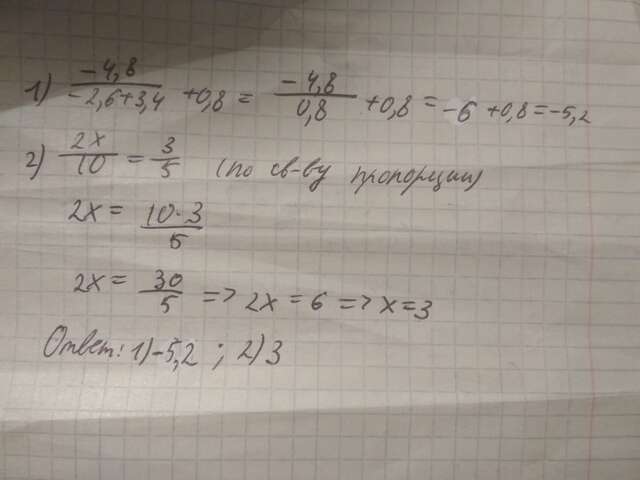 1) -4,8/(-2,6+3,4) +0,8 = -4,8/0,8 +0,8 = -6 +0,8 = -5,2
2) 2x/10 = 3/5 (по св-ву пропорции)
2x = 10·3/5
2x = 30/5 => 2x = 6 => x = 3
Ответ: 1) -5,2 ; 2) 3